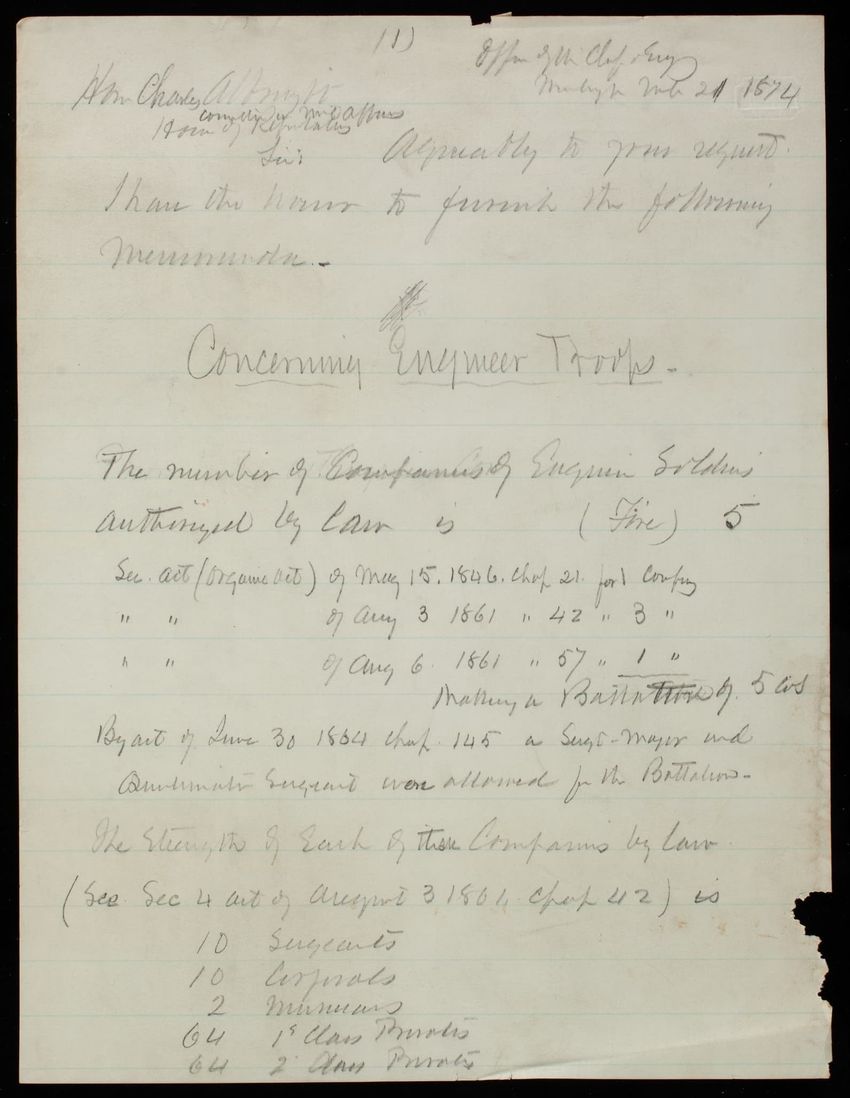 (1)
Office of the Chf of Eng
Feb 21 1874
Hon Charles Albright
Committee on Mil Affairs
House of Reptatives
Sir: Agreeably to your request.
I have the honor to furnish the following
Memoranda.-
Concerning Engineer Troops-
The number of Companies of Engineer Soldiers
authorized by law is (Five) 5
See. act (Organic act) of May 15. 1846. Chap 21. for 1 Company
" " of Aug 3 1861 " 42 " 3 "
" " of Aug 6. 1861 " 57 " 1 "
Making a Battalion of. 5 cos
By act of June 30 1864 chap. 145 a Sergt-Major and
Quartermaster Sergeant were allowed for the Battalion-
The Strength of Each of these Companies by law.
(See Sec 4 act of August 3 1861. Chap 42) is
10 Sergeants
10 Corporals
2 Musicians
64 1s Class Privates
64 2 Class Privates